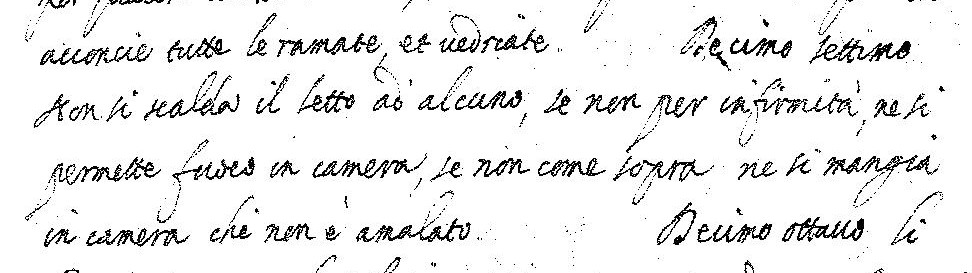 acconcie tutte le ramate, et vedriate. Decimo settimo
Non si scalda il letto ad alcuno, se non per infirmità, ne si
permette fuoco in camera, se non come sopra ne si mangia
in camera chi non è amalato. Decimo ottavo si